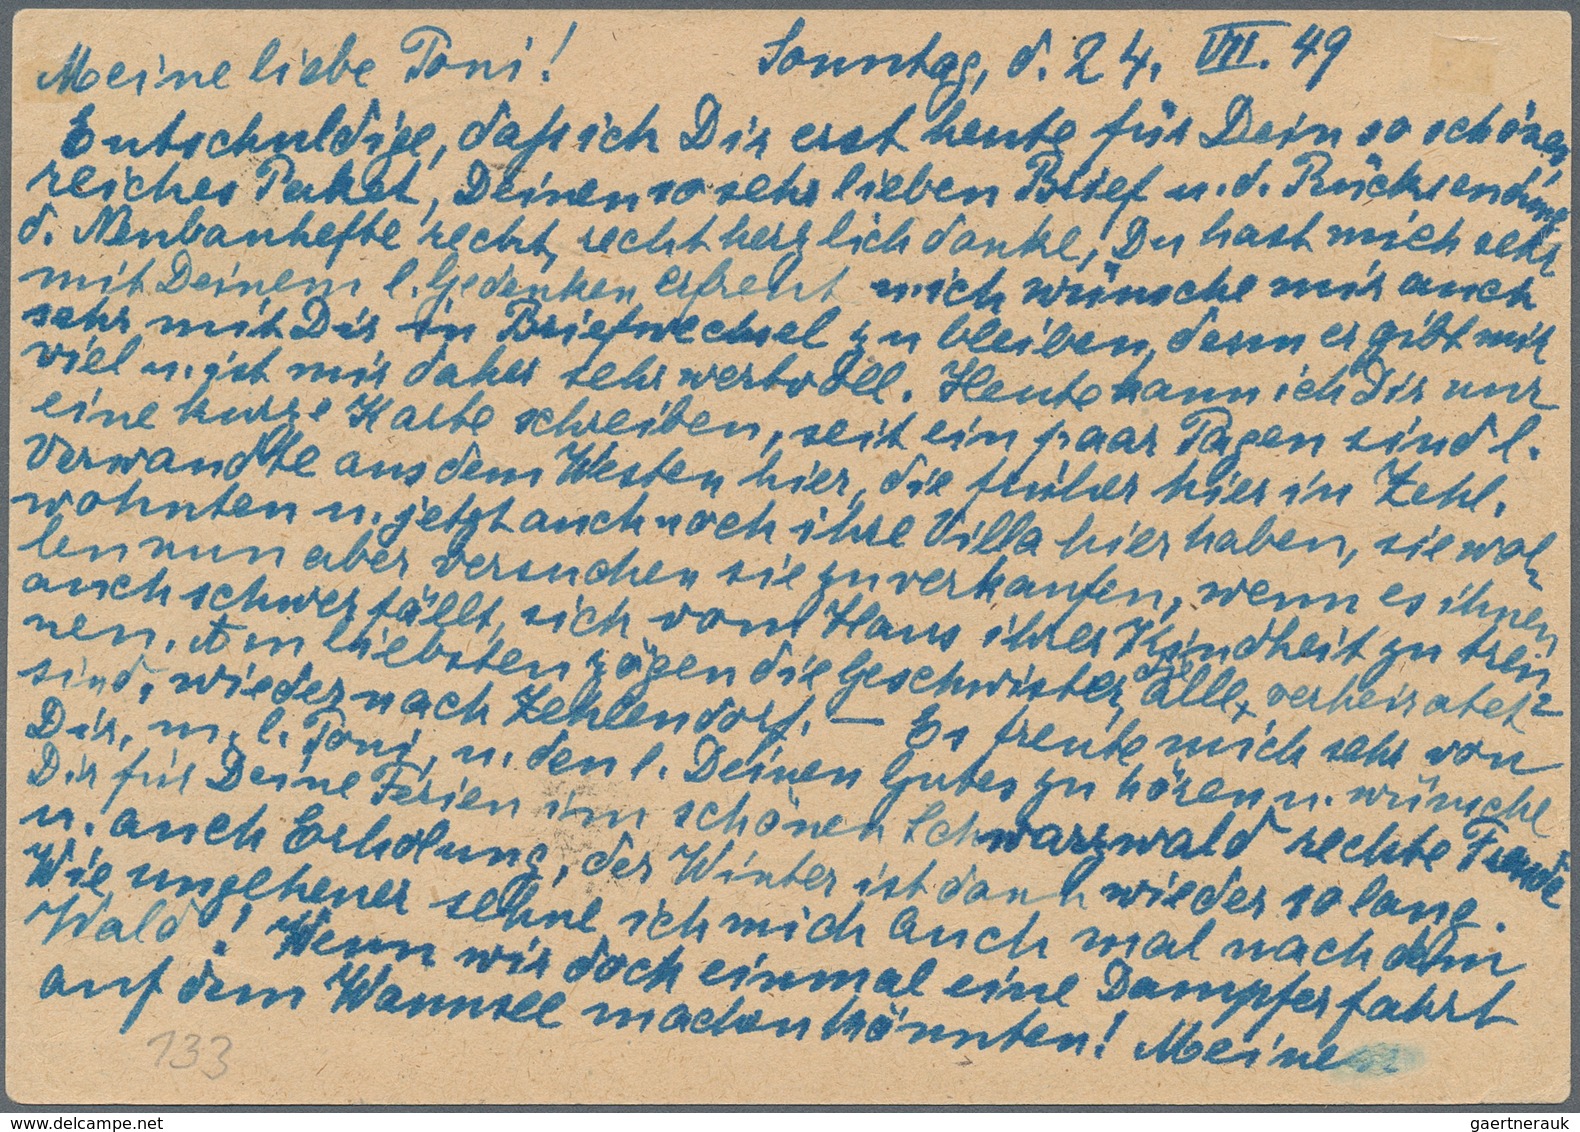 Meine liebe Toni! Sonntag, d. 24. VII. 49
Entschuldige, daß ich Dir erst heute für Dein so schönes,
reiches Paket, Deinen so sehr lieben Brief u. d. Rücksendung
d. Neubauhefte recht, recht herzlich danke, Du hast mich sehr
mit Deinem l. Gedenken erfreut u. ich wünsche mir auch
sehr mit Dir in Briefwechsel zu bleiben, denn er gibt mir
viel u. ist mir daher sehr wertvoll. Heute kann ich Dir nur
eine kurze Karte schreiben, seit ein paar Tagen sind l.
Verwandte aus dem Westen hier, die früher hier in Zehl.
wohnten u. jetzt auch noch ihre Villa hier haben, sie wol-
len nun aber versuchen sie zu verkaufen, wenn es ihnen
auch schwer fällt, sich vom Haus ihrer Kindheit zu tren-
nen. Am liebsten zögen die Geschwister, die alle verheiratet
sind, wieder nach Zehlendorf. — Es freute mich sehr von
Dir, m. l. Toni, u. den l. Deinen Gutes zu hören u. wünsche
Dir für Deine Ferien im schönen Schwarzwald rechte Freude
u. auch Erholung, der Winter ist dann wieder so lang.
Wie ungeheuer sehne ich mich auch mal nach dem
Wald! Wenn wir doch einmal eine Dampferfahrt
auf dem Wannsee machen könnten! Meine
133
gaertnerauk